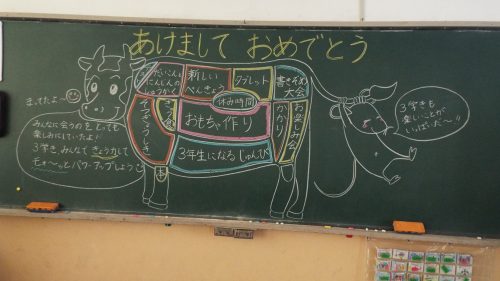 あけまして おめでとう
まってたよ〜
みんなに会うのをとっても
楽しみにしていたよ!!
3学き、みんなで きょう力して
モォ〜っとパワーアップしようね
だいこんと
にんじんの
しゅうかく
新しい
べんきょう
タブレット
書きぞめ
大会
休み時間
おもちゃ作り
かかり
お楽しみ会
3年生になるじゅんび
3学きも
楽しいことが
いっぱいだ〜!!